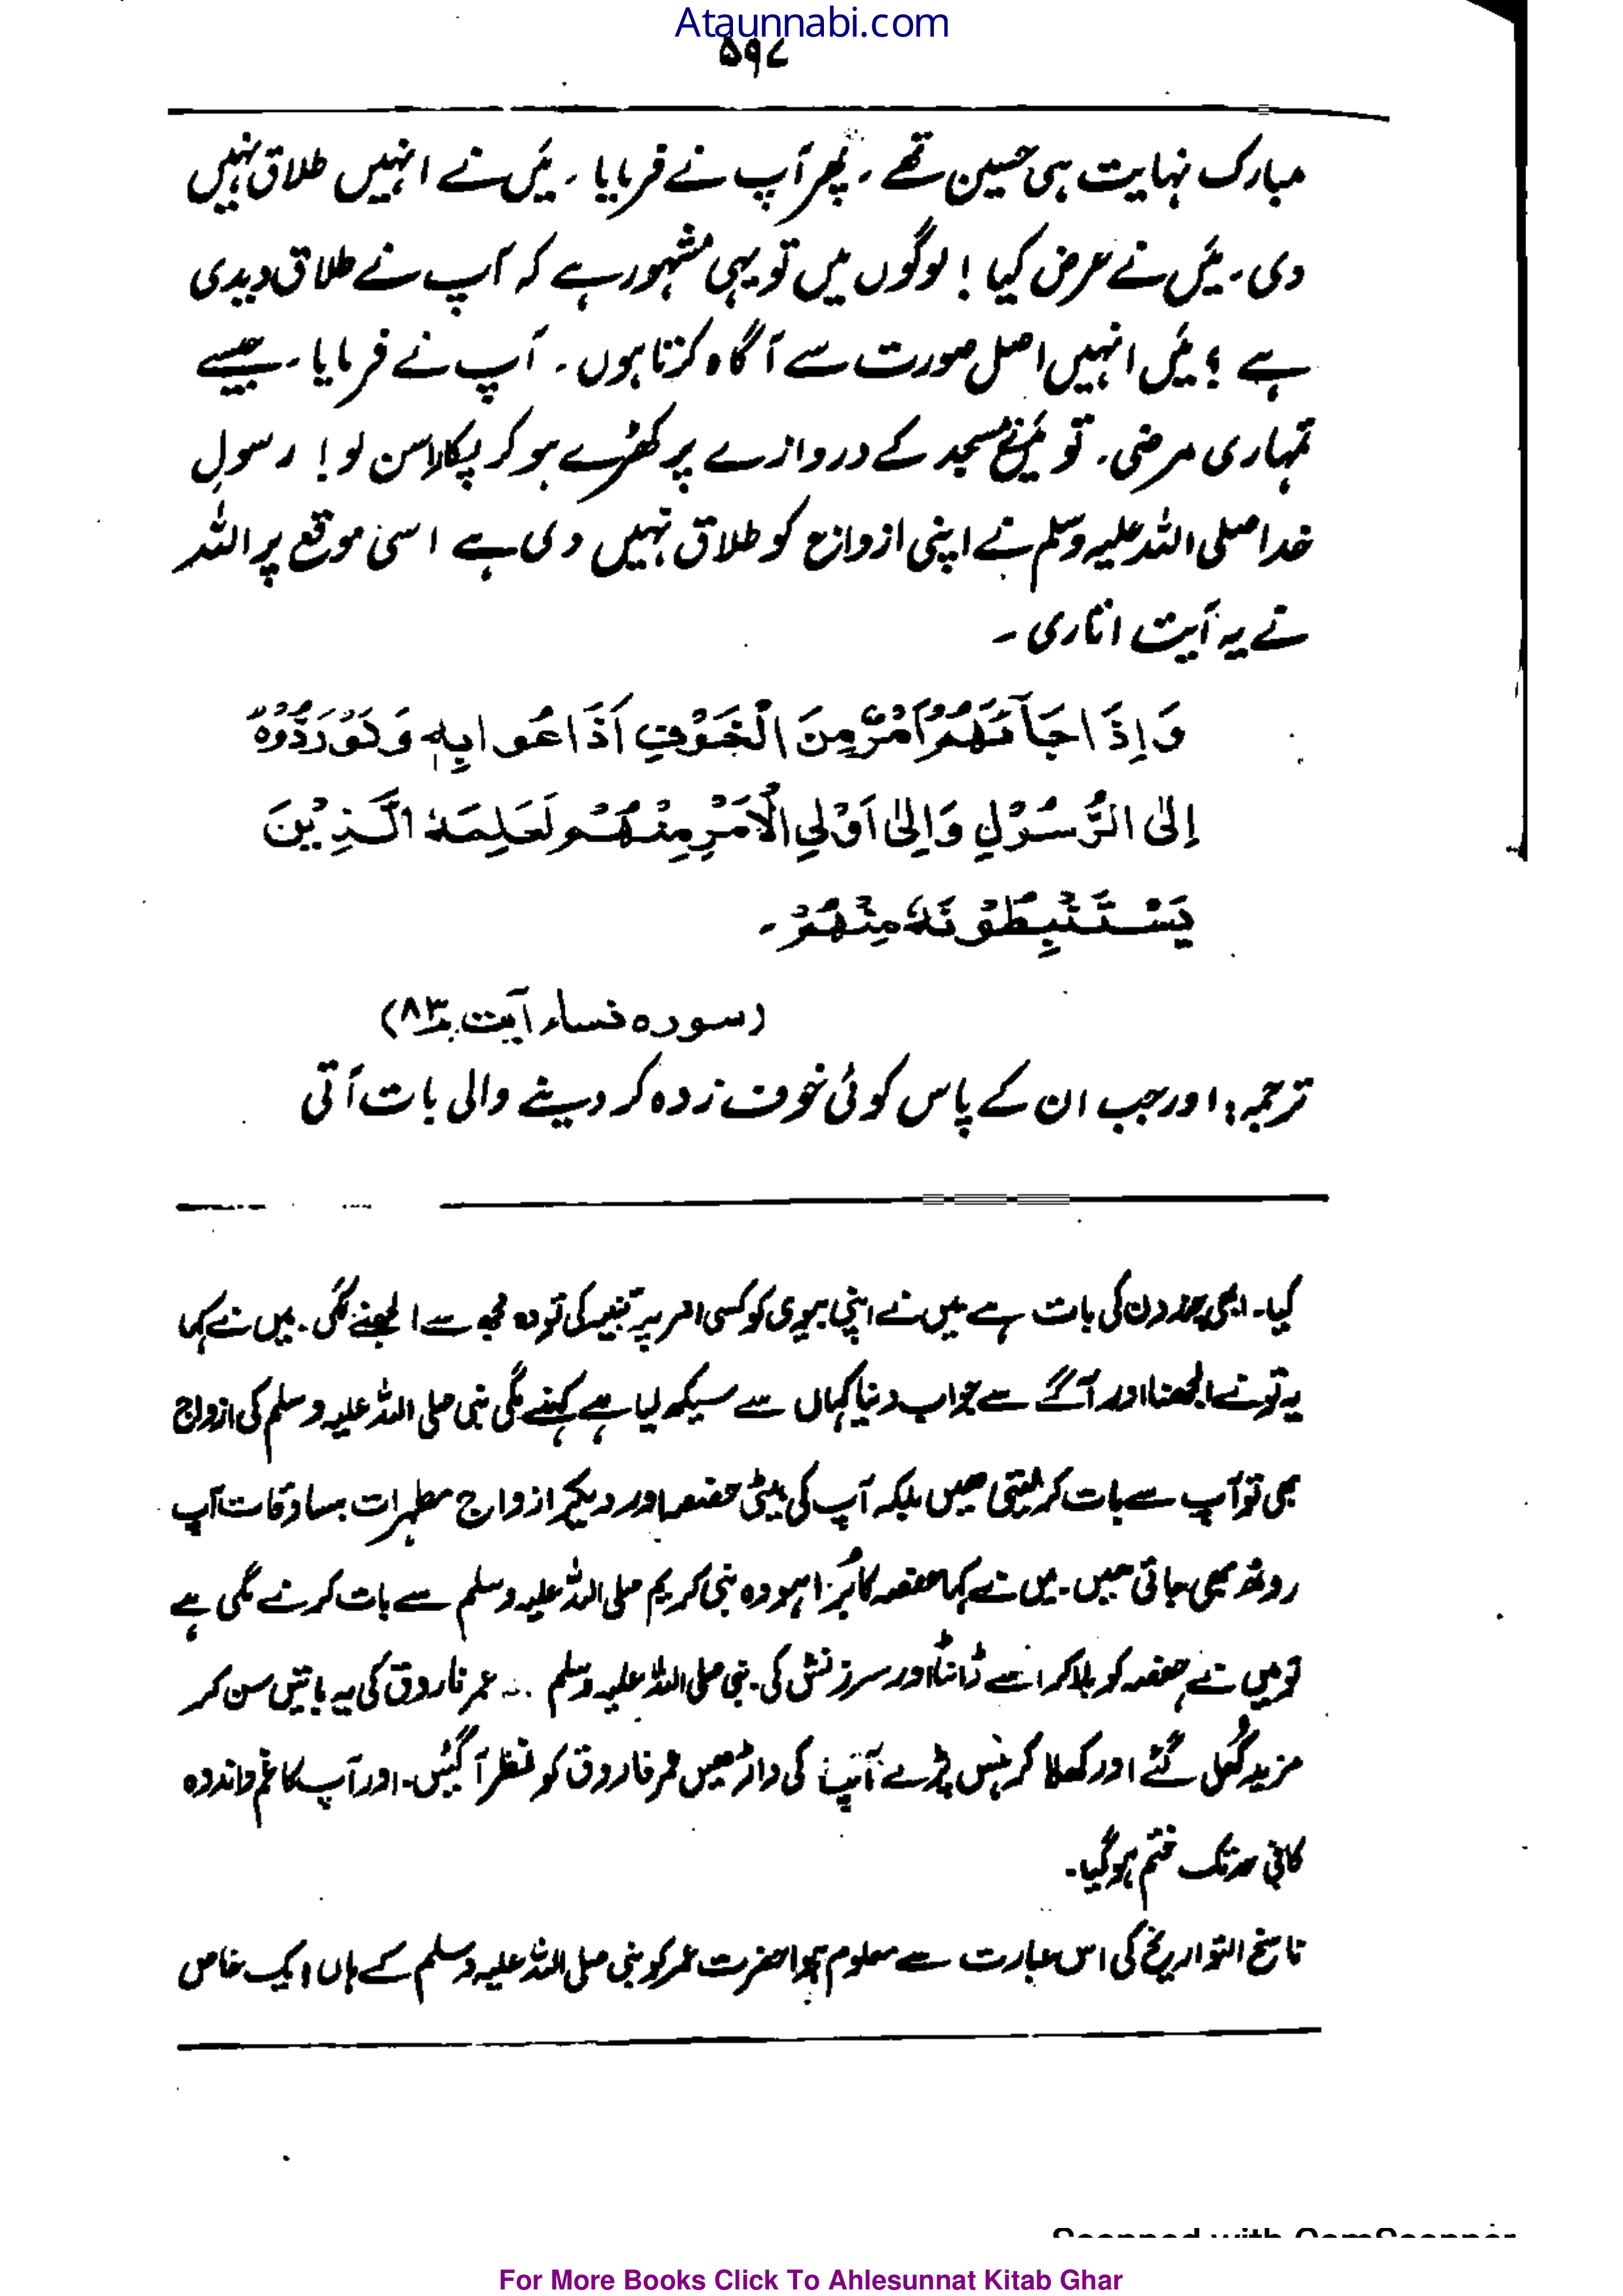 Ataunnabi.com
۵۹۷
مبارک نہایت ہی حسین تھے ۔ پھر آپ نے فرمایا ۔ میں نے انہیں طلاق نہیں
دی ۔ میں نے عرض کیا ! لوگوں میں تو یہی مشہور ہے کہ آپ نے طلاق دیدی
ہے ؛ میں انہیں اصل صورت سے آگاہ کرتا ہوں ۔ آپ نے فرمایا ۔ جیسے
تمہاری مرضی ۔ تو میں نے مسجد کے دروازے پر کھڑے ہو کر پکارا سن لو ! رسولِ
خدا صلی اللہ علیہ وسلم نے اپنی ازواج کو طلاق نہیں دی ہے اسی موقع پر اللہ
نے یہ آیت اتاری ۔
وَاِذَا جَآءَهُمْ اَمْرٌ مِنَ الْخَوْفِ اَذَاعُوا بِهٖ وَلَوْ رَدُّوْهُ
اِلَى الرَّسُوْلِ وَاِلٰى اُوْلِي الْاَمْرِ مِنْهُمْ لَعَلِمَهُ الَّذِيْنَ
يَسْتَنْبِطُوْنَهٗ مِنْهُمْ ۔
(سورہ نساء آیت ۸۳)
ترجمہ : اور جب ان کے پاس کوئی خوف زدہ کر دینے والی بات آتی
کیا ۔ ابھی چند دن کی بات ہے میں نے اپنی بیوی کو کسی امر پر تنبیہ کی تو وہ مجھ سے الجھنے لگی ۔ میں نے کہا
یہ تو نے الجھنا اور آگے سے جواب دینا کہاں سے سیکھ لیا ہے کہنے لگی نبی صلی اللہ علیہ وسلم کی ازواج
بھی تو آپ سے بات کر لیتی ھیں بلکہ آپ کی بیٹی حفصہ اور دیگر ازواج مطہرات بسا اوقات آپ
روٹھ بھی جاتی ھیں ۔ میں نے کہا حفصہ کا بُرا ہو وہ نبی کریم صلی اللہ علیہ وسلم سے بات کرنے لگی ہے
تو میں نے حفصہ کو بلا کر اسے ڈانٹا اور سرزنش کی ۔ نبی صلی اللہ علیہ وسلم ۔۔ عمر فاروق کی یہ باتیں سن کر
مزید کُھل گئے اور کھلا کر ہنس پڑے آپ کی داڑھیں عمر فاروق کو نظر آ گئیں ۔ اور آپ کا غم و اندوہ
کافی حد تک ختم ہو گیا ۔
ناسخ التواریخ کی اس عبارت سے معلوم ہوا حضرت عمر کو نبی صلی اللہ علیہ وسلم کے ہاں ایک خاص
Scanned with CamScanner
For More Books Click To Ahlesunnat Kitab Ghar